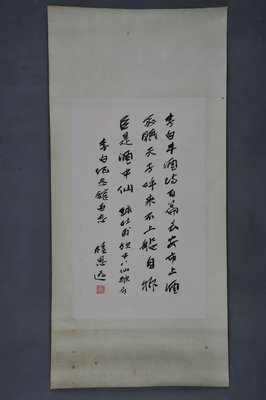 李白斗酒诗百篇长安市上酒
家眠天子呼来不上船自称
臣是酒中仙 录杜甫饮中八仙歌句
李白纪念馆留念
程思远